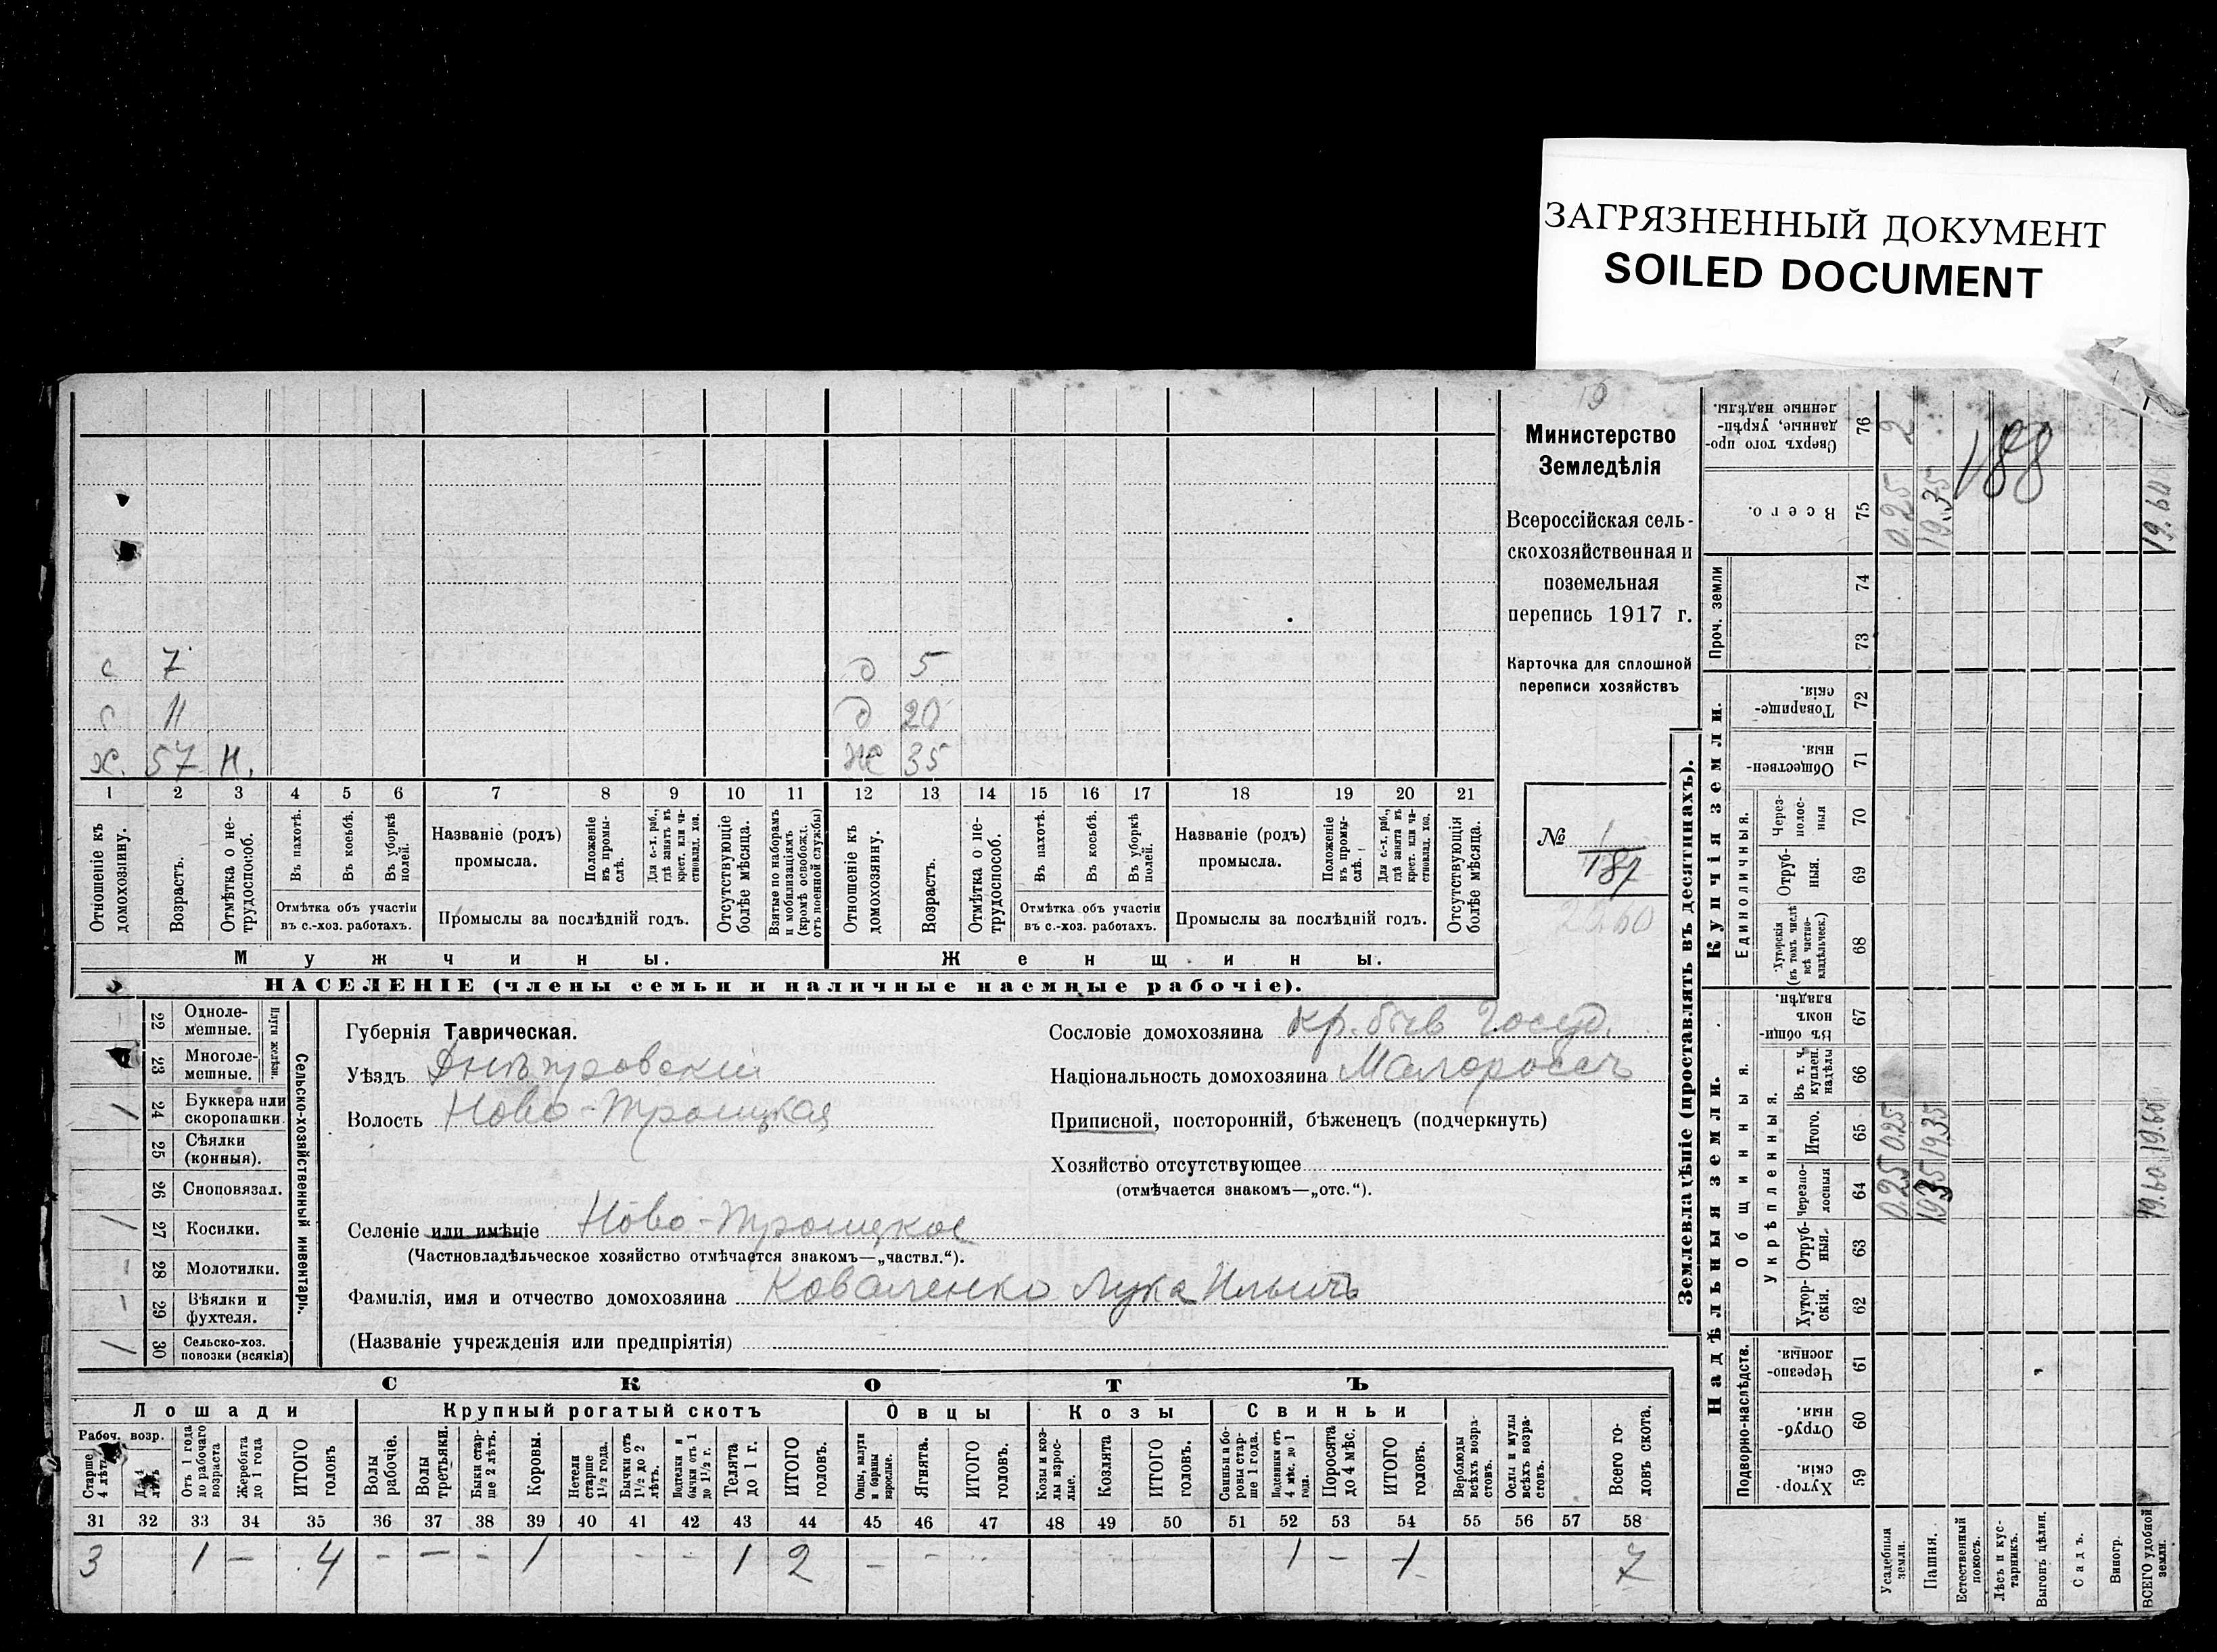 ЗАГРЯЗНЕННЫЙ ДОКУМЕНТ
SOILED DOCUMENT
Министерство
Земледѣлія
Всероссійская сель-
скохозяйственная и
поземельная
перепись 1917 г.
Карточка для сплошной
переписи хозяйствъ
№ 1
187
с 7 д 5
с 11 д 20
х. 57 н. же 35
1 2 3 4 5 6 7 8 9 10 11 12 13 14 15 16 17 18 19 20 21
Отношеніе къ домохозяину.
Возрастъ.
Отмѣтка о не-трудоспособ.
Въ пахотѣ.
Въ косьбѣ.
Въ уборкѣ полей.
Отмѣтка объ участіи
въ с.-хоз. работахъ.
Названіе (родъ)
промысла.
Положеніе въ промы-слѣ.
Для с.-х. раб., гдѣ занятъ въ крест. или ча-стновлад. хоз.
Промыслы за послѣдній годъ.
Отсутствующіе болѣе мѣсяца.
Взятые по наборамъ и мобилизаціямъ (кромѣ освобожд. отъ военной службы)
Отношеніе къ домохозяину.
Возрастъ.
Отмѣтка о не-трудоспособ.
Въ пахотѣ.
Въ косьбѣ.
Въ уборкѣ полей.
Отмѣтка объ участіи
въ с.-хоз. работахъ.
Названіе (родъ)
промысла.
Положеніе въ промы-слѣ.
Для с.-х. раб., гдѣ занята въ крест. или ча-стновлад. хоз.
Промыслы за послѣдній годъ.
Отсутствующія болѣе мѣсяца.
Мужчины. Женщины.
НАСЕЛЕНІЕ (члены семьи и наличные наемные рабочіе).
Сельско-хозяйственный инвентарь.
Плуги желѣзн.
22 Одноле-мешные.
23 Многоле-мешные.
1 24 Буккера или скоропашки.
25 Сѣялки (конныя).
26 Сноповязал.
1 27 Косилки.
- 28 Молотилки.
- 29 Вѣялки и фухтеля.
1 30 Сельско-хоз. повозки (всякія)
Губернія Таврическая.
Уѣздъ Днѣпровскій
Волость Ново-Троицкая
Селеніе или имѣніе Ново-Троицкое
(Частновладѣльческое хозяйство отмѣчается знакомъ—„частвл.“).
Фамилія, имя и отчество домохозяина Коваленко Лука Ильичъ
(Названіе учрежденія или предпріятія)
Сословіе домохозяина Кр. быв Госуд.
Національность домохозяина Малороссъ
Приписной, посторонній, бѣженец (подчеркнуть)
Хозяйство отсутствующее
(отмѣчается знакомъ—„отс.“).
СКОТЪ
Лошади Крупный рогатый скотъ Овцы Козы Свиньи
Рабоч. возр.
Старше 4 лѣтъ
До 4 лѣтъ
Отъ 1 года до рабочаго возраста
Жеребята до 1 года
ИТОГО головъ
Волы рабочіе.
Волы третьяки.
Быки стар-ше 2 лѣтъ.
Коровы.
Нетели старше 1½ года.
Бычки отъ 1½ до 2 лѣтъ.
Подтелки и бычки отъ 1 до 1½ г.
Телята до 1 г.
ИТОГО головъ.
Овцы, валухи и бараны взрослые.
Ягнята.
ИТОГО головъ.
Козы и коз-лы взрос-лые.
Козлята
ИТОГО головъ.
Свиньи и бо-ровы стар-ше 1 года.
Подсвинки отъ 4 мѣс. до 1 года.
Поросята до 4 мѣс.
ИТОГО головъ.
Верблюды всѣхъ возра-стовъ.
Ослы и мулы всѣхъ возра-стовъ.
Всего го-ловъ скота.
31 32 33 34 35 36 37 38 39 40 41 42 43 44 45 46 47 48 49 50 51 52 53 54 55 56 57 58
3 1 - 4 - - - 1 - - 1 2 - - 1 - 1 7
Землевладѣніе (проставлять въ десятинахъ).
Надѣльныя земли. Купчія земли.
Проч. земли
Подворно-наслѣдств.
Общинныя.
Укрѣпленныя.
Единоличныя.
Сверхъ того про-данные, укрѣп-ленные надѣлы. 76
Всего. 75
74
73
Товарище-скія. 72
Обществен-ныя 71
Через-полос-ныя 70
Отруб-ныя. 69
Хуторскія (въ томъ числѣ всѣ частно-владѣльческ.) 68
Въ общи-номъ владѣн. 67
Въ т. ч. куплен. надѣлы 66
Итого. 65
Черезпо-лосныя 64
Отруб-ныя. 63
Хутор-скія. 62
Черезпо-лосныя. 61
Отруб-ныя. 60
Хутор-скія 59
Усадебныя земли. 0.25 0.25 0.25 2
Пашня. 19.35 19.35 19.35
Естественный покосъ.
Лѣсъ и кус-тарникъ.
Выгонъ цѣлин.
Садъ.
Виногр.
ВСЕГО удобной земли. 19.60 19.60 19.60
188